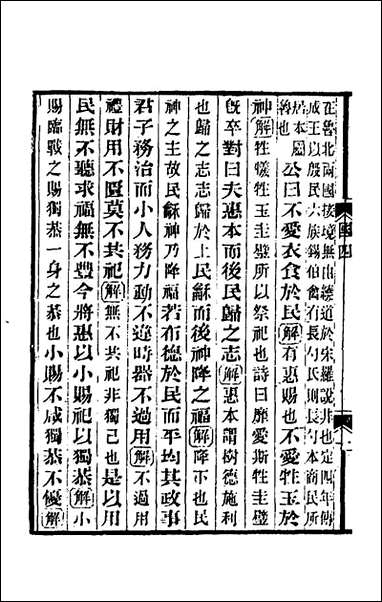 在魯北兩國接境無由繞道於宋羅說非也定四年傳
成王以殷民六族錫伯禽有長勺氏則長勺本商民所
居本屬
魯也
公曰不愛衣食於民解有惠賜也不愛牲玉於
神解牲犧牲玉圭璧所以祭祀也詩曰靡愛斯牲圭璧
既卒對曰夫惠本而後民歸之志解惠本謂樹德施利
也歸之志志歸於上民龢而後神降之福解降下也民
神之主故民龢神乃降福若布德於民而平均其政事
君子務治而小人務力動不違時器不過用解不過用
禮財用不匱莫不共祀解無不共祀非獨己也是以用
民無不聽求福無不豐今將惠以小賜祀以獨恭解小
賜臨戰之賜獨恭一身之恭也小賜不咸獨恭不優解